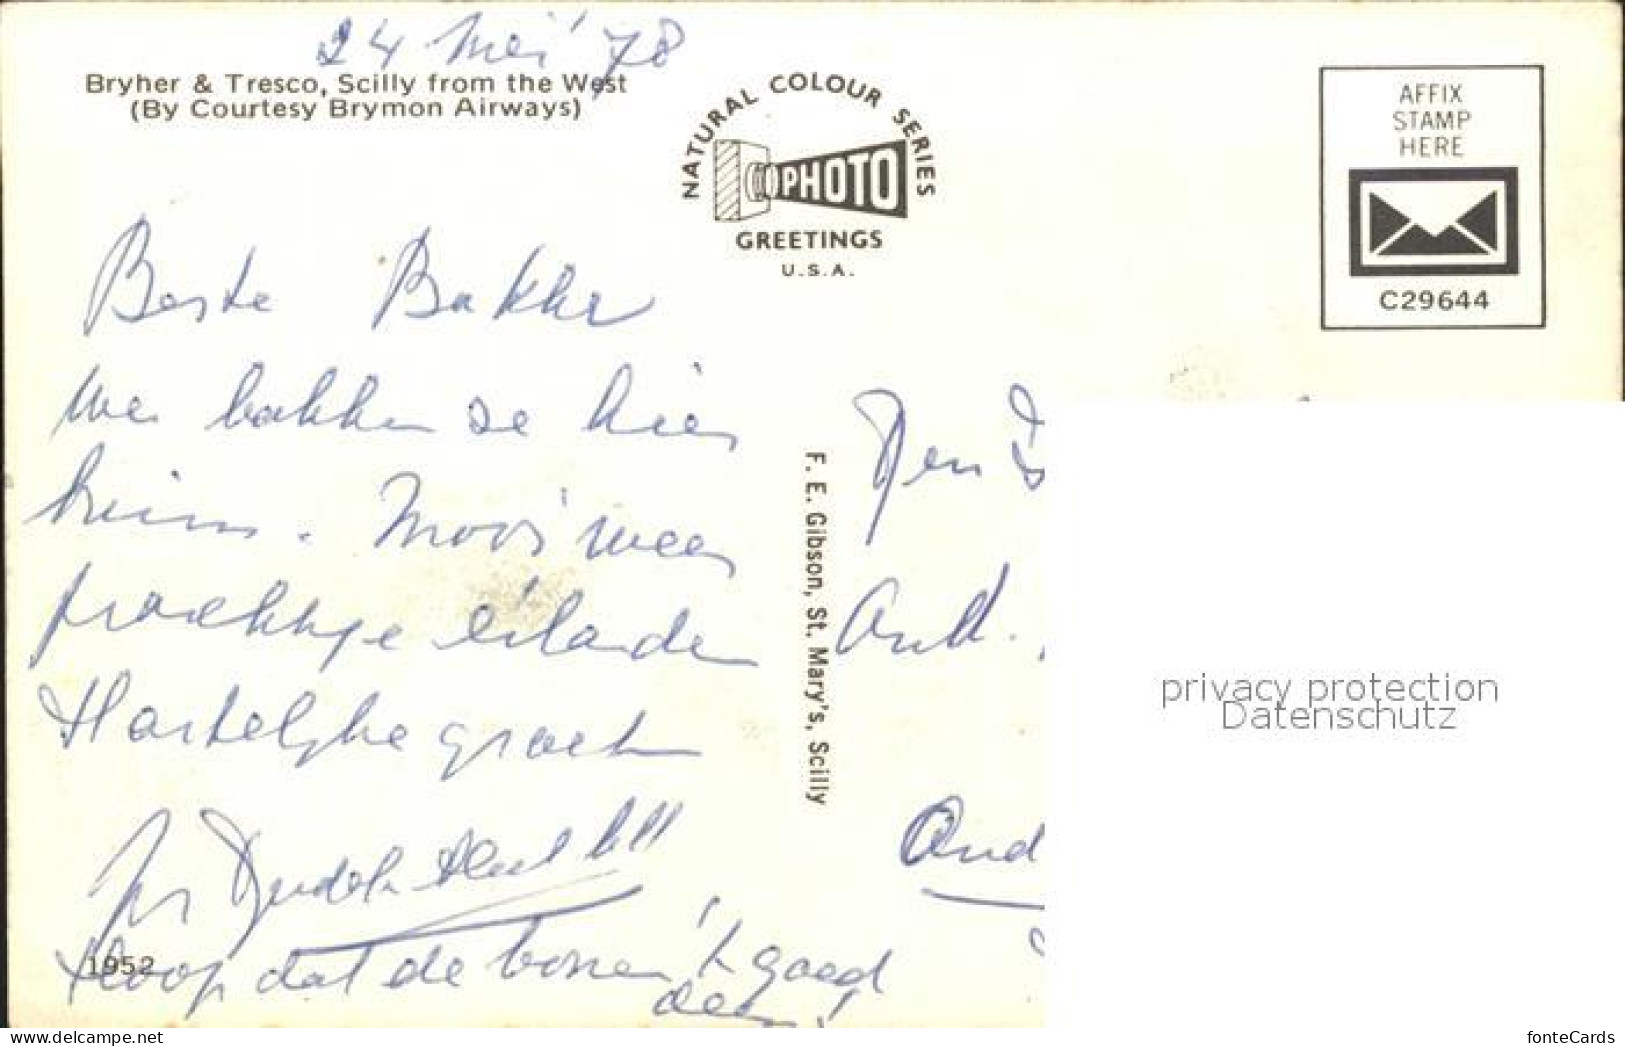 24 Mei '78
Bryher & Tresco, Scilly from the West
(By Courtesy Brymon Airways)
NATURAL COLOUR SERIES
PHOTO
GREETINGS
U.S.A.
AFFIX
STAMP
HERE
C29644
Beste Bakker
We bakken ze hier
bruin. Mooi weer
prachtige eilanden
Hartelijke groeten
Hoop dat de bonen 't goed
doen!
1952
F. E. Gibson, St. Mary's, Scilly
Den
And
privacy protection
Datenschutz
https://www.delcampe.net
fonteCards